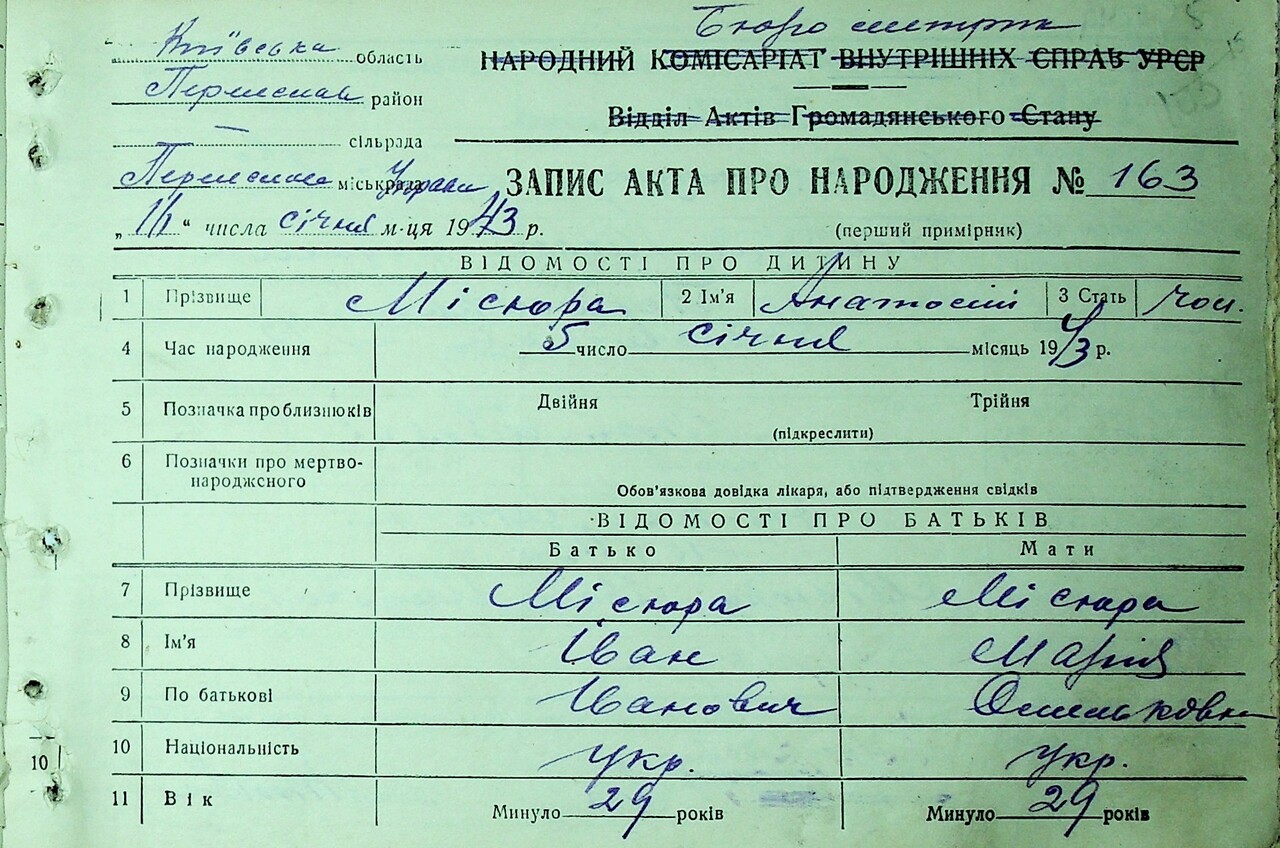 Бюро метрик
Київська область
НАРОДНИЙ КОМІСАРІАТ ВНУТРІШНІХ СПРАВ УРСР
Переяслав район
Відділ Актів Громадянського Стану
— сільрада
Переяслав міськрада Управа
ЗАПИС АКТА ПРО НАРОДЖЕННЯ № 163
„11“ числа січня м-ця 1943 р.
(перший примірник)
ВІДОМОСТІ ПРО ДИТИНУ
1 Прізвище Місюра 2 Ім'я Анатолій 3 Стать чол.
4 Час народження 5 число січня місяць 1943 р.
5 Позначка про близнюків Двійня Трійня
(підкреслити)
6 Позначки про мертво-
народженого
Обов'язкова довідка лікаря, або підтвердження свідків
ВІДОМОСТІ ПРО БАТЬКІВ
Батько Мати
7 Прізвище Місюра Місюра
8 Ім'я Іван Марія
9 По батькові Іванович Омельковна
10 Національність укр. укр.
11 Вік Минуло 29 років Минуло 29 років
10